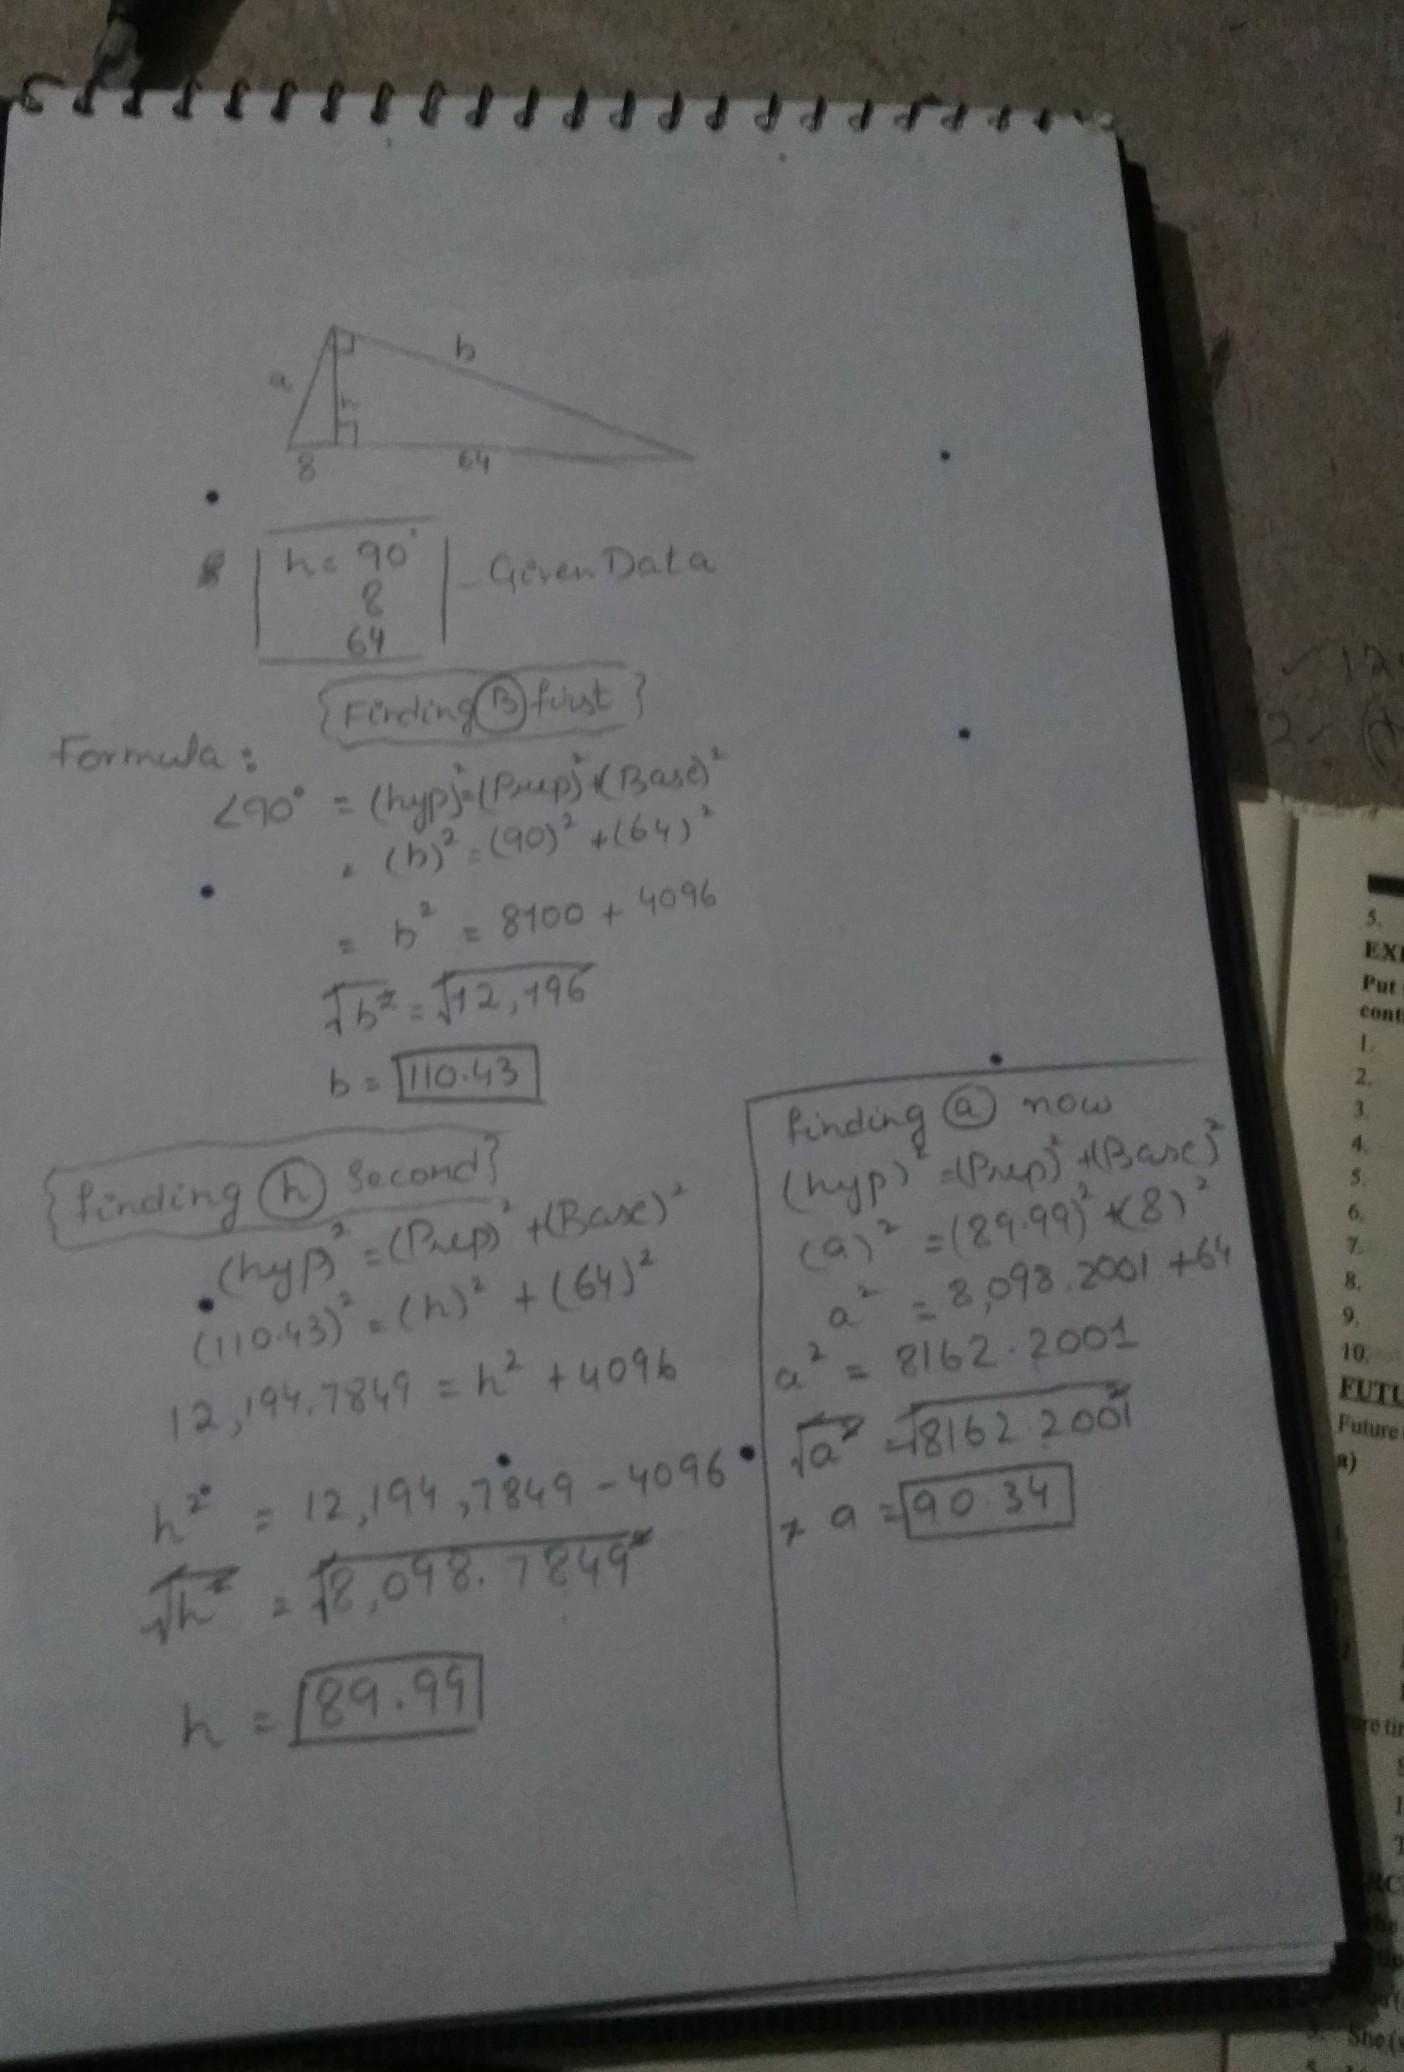 a
b
h
8
64
h = 90°
8
64
Given Data
{Finding B first}
Formula:
∠90° = (hyp)² = (Prep)² + (Base)²
= (b)² = (90)² + (64)²
= b² = 8100 + 4096
√b² = √12,196
b = 110.43
{finding h Second}
(hyp)² = (Prep)² + (Base)²
(110.43)² = (h)² + (64)²
12,194.7849 = h² + 4096
h² = 12,194,7849 - 4096
√h² = √8,098.7849
h = 89.99
finding a now
(hyp)² = (Prep)² + (Base)²
(a)² = (89.99)² + (8)²
a² = 8,098.2001 + 64
a² = 8162.2001
√a² = √8162.2001
a = 90.34
5.
Put
1.
2.
3.
4.
5.
6.
7.
8.
9.
10.
Future
a)
She